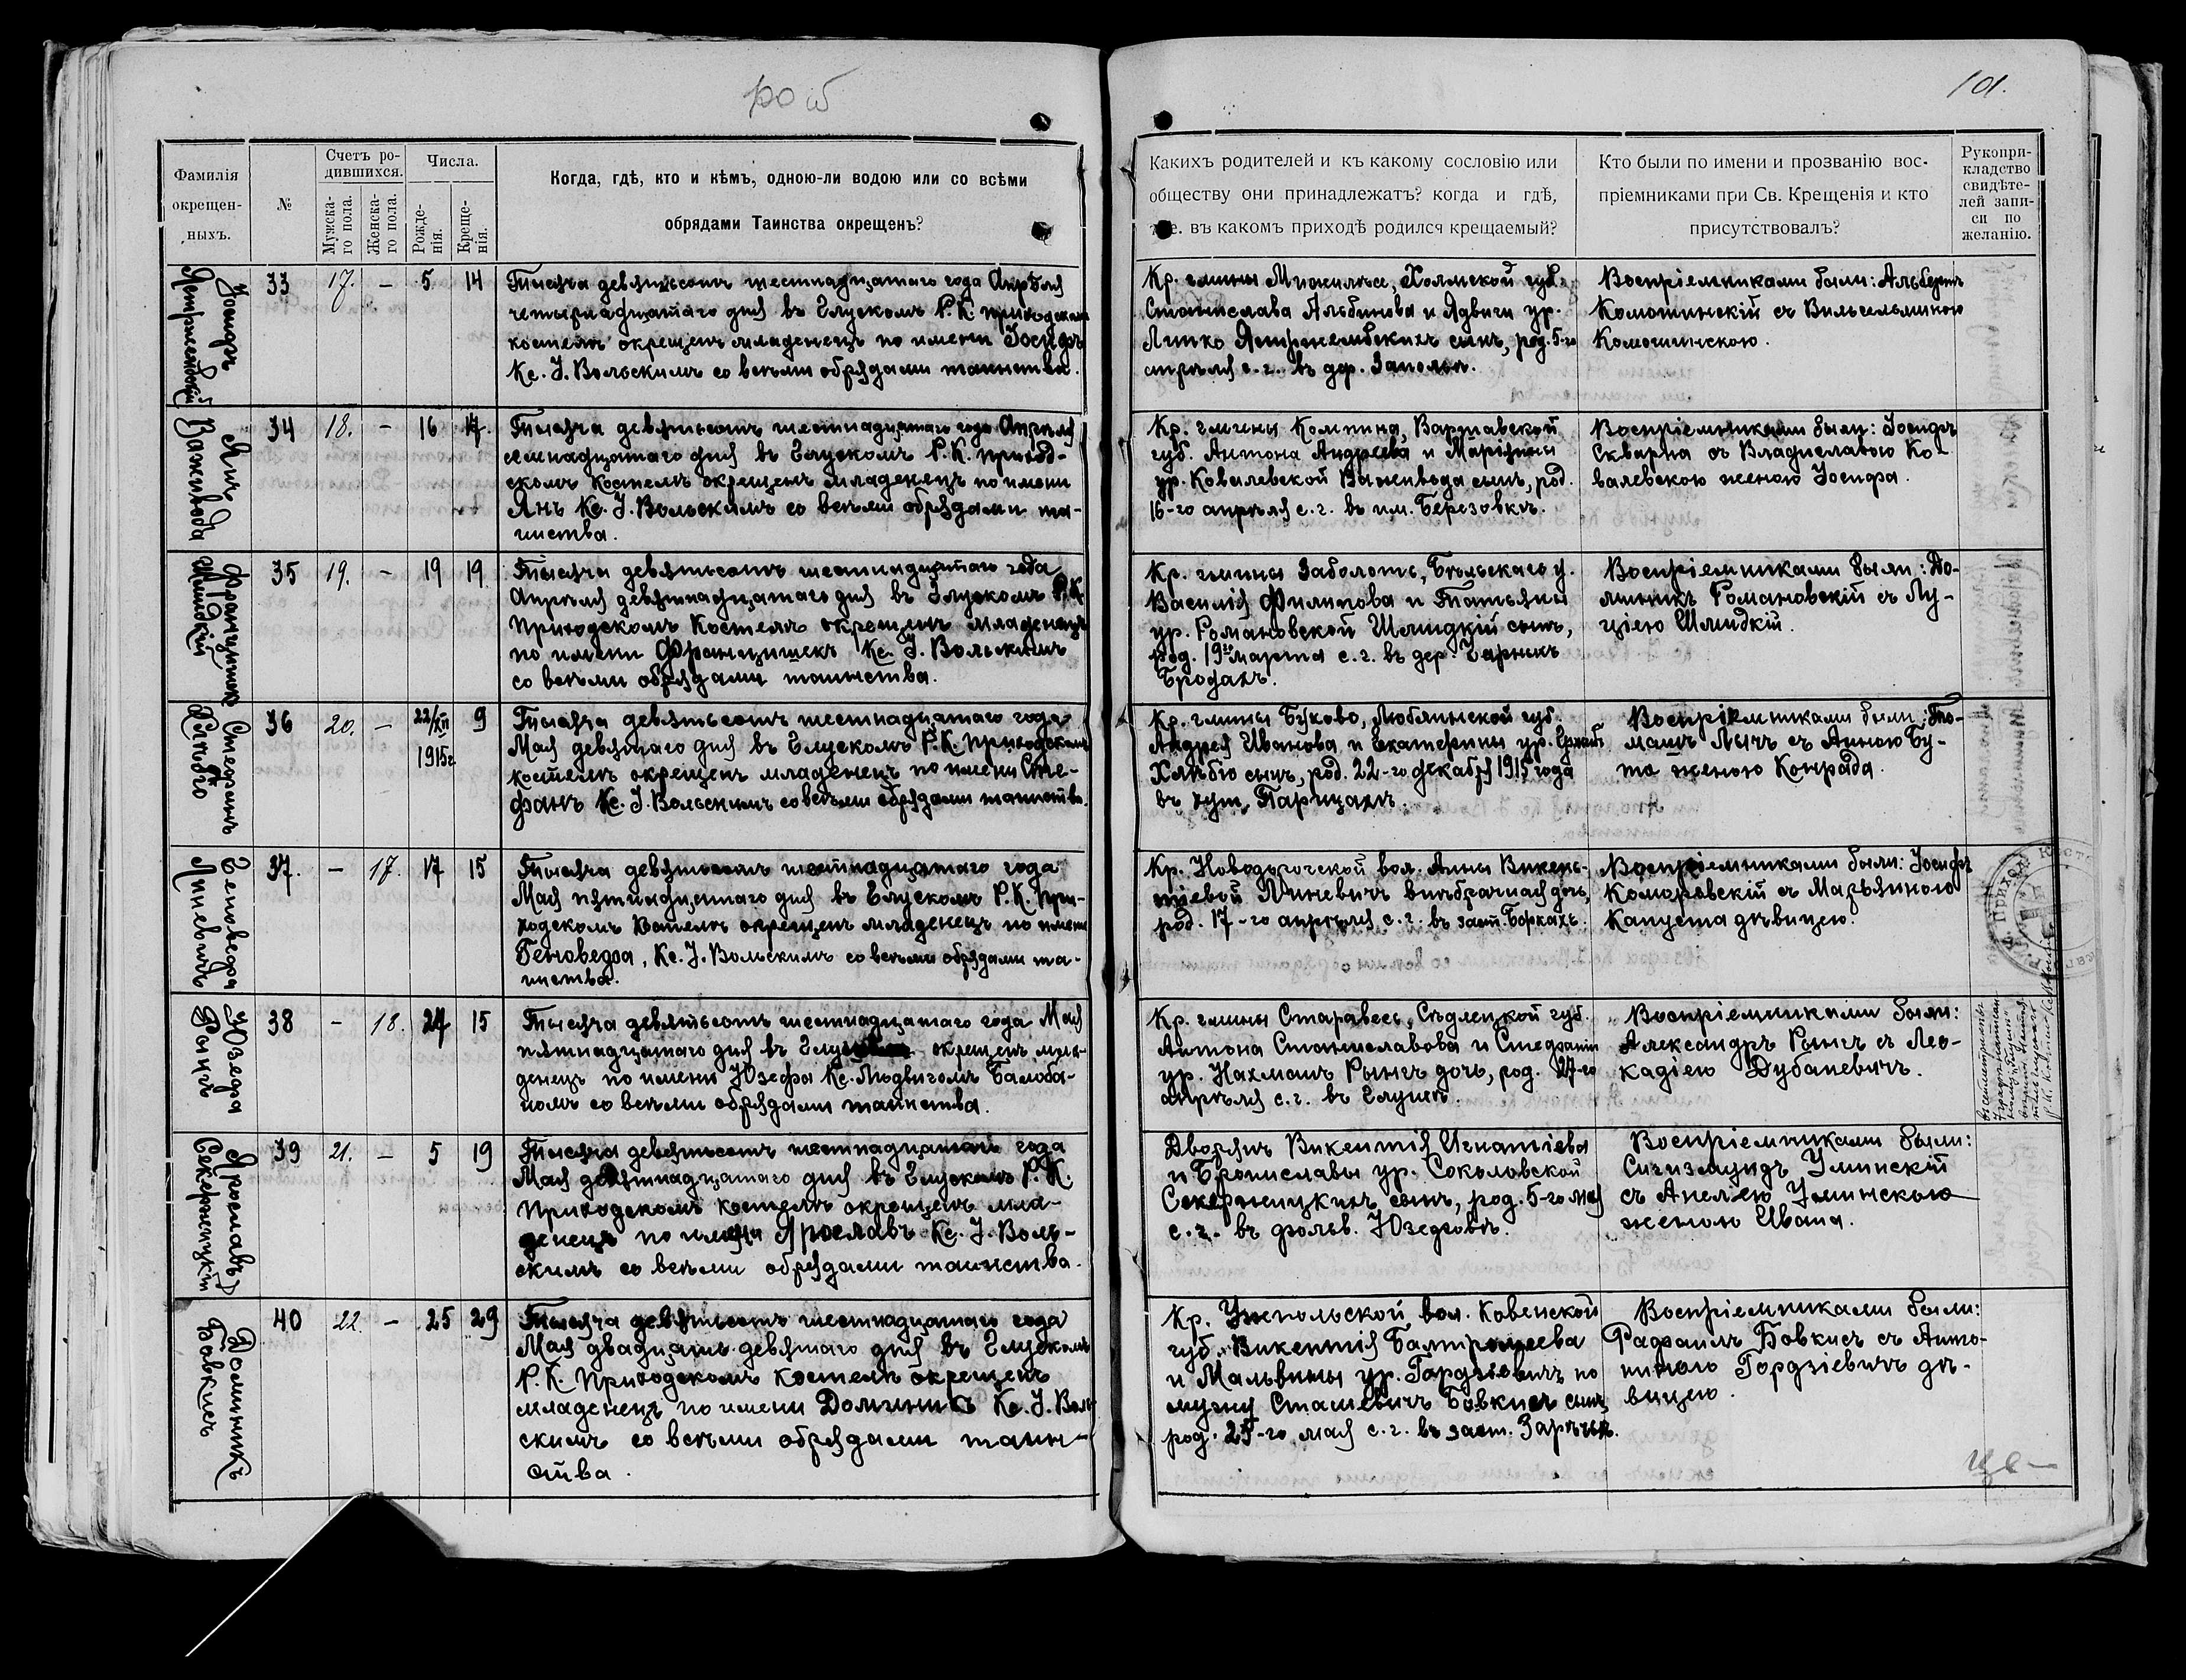 101.
Фамилія окрещен-ныхъ.
№
Счетъ ро-дившихся.
Мужска-го пола.
Женска-го пола.
Числа.
Рожде-нія.
Креще-нія.
Когда, гдѣ, кто и кѣмъ, одною-ли водою или со всѣми
обрядами Таинства окрещенъ?
Какихъ родителей и къ какому сословію или
обществу они принадлежатъ? когда и гдѣ,
т. е. въ какомъ приходѣ родился крещаемый?
Кто были по имени и прозванію вос-
пріемниками при Св. Крещенія и кто
присутствовалъ?
Рукопри-
кладство
свидѣте-
лей запи-
си по
желанію.
Іосифъ
33 17. – 5 14
Тысяча девятьсотъ шестнадцатаго года Апрѣля
четырнадцатаго дня въ Глускомъ Р. К. приходскомъ
костелѣ окрещенъ младенецъ по имени Іосифъ
Кс. І. Вольскимъ со всѣми обрядами таинства.
Кр. гмины Холмской губ.
Станислава Альбинова и Ядвиги ур.
Линко сынъ, род. 5-го
апрѣля с. г. въ дер. Заполье.
Воспріемниками были: Альбертъ
Комошинскій съ Вильгельминою
Комошинскою.
Янъ
Важивода
34 18. – 16 17.
Тысяча девятьсотъ шестнадцатаго года Апрѣля
семнадцатаго дня въ Глускомъ Р. К. приход-
скомъ Костелѣ окрещенъ младенецъ по имени
Янъ Кс. І. Вольскимъ со всѣми обрядами та-
инства.
Кр. гмины Компина, Варшавской
губ. Антона Андреева и Маріанны
ур. Ковалевской Важивода сынъ, род.
16-го апрѣля с. г. въ им. Березовкѣ.
Воспріемниками были: Іосифъ
Скварна съ Владиславою Ко-
валевскою женою Іосифа.
Францишекъ
Шмидкій
35 19. – 19 19
Тысяча девятьсотъ шестнадцатаго года
Апрѣля девятнадцатаго дня въ Глускомъ Р. К.
Приходскомъ Костелѣ окрещенъ младенецъ
по имени Францишекъ Кс. І. Вольскимъ
со всѣми обрядами таинства.
Кр. гмины Заболоть, Бѣльскаго у.
Василія Филипова и Татьяны
ур. Романовской Шмидкій сынъ,
род. 19го марта с. г. въ дер. Чарныхъ
Бродахъ.
Воспріемниками были: До-
миникъ Романовскій съ Лу-
ціею Шмидкій.
Стефанъ
36 20. – 22/XII 1915г. 9
Тысяча девятьсотъ шестнадцатаго года
Мая девятаго дня въ Глускомъ Р. К. Приходскомъ
костелѣ окрещенъ младенецъ по имени Сте-
фанъ Кс. І. Вольскимъ со всѣми обрядами таинства.
Кр. гмины Буково, Люблинской губ.
Андрея Иванова и Екатерины ур.
Хлѣбіо сынъ, род. 22-го декабря 1915 года
въ хут. Парицахъ.
Воспріемниками были: То-
машъ Лычъ съ Анною Бу-
та женою Конрада.
Геноведфа
Линевичъ
37. – 17. 17 15
Тысяча девятьсотъ шестнадцатаго года
Мая пятнадцатаго дня въ Глускомъ Р. К. При-
ходскомъ Костелѣ окрещенъ младенецъ по имени
Геноведфа, Кс. І. Вольскимъ со всѣми обрядами та-
инства.
Кр. Новодорочской вол. Анны Викень-
тіевой Линевичъ внѣбрачная дочь,
род. 17-го апрѣля с. г. въ заст. Боркахъ.
Воспріемниками были: Іосифъ
Комаревскій съ Марьяною
Капуста дѣвицею.
Юзефа
Рынгъ
38 – 18. 27 15
Тысяча девятьсотъ шестнадцатаго года Мая
пятнадцатаго дня въ окрещенъ мла-
денецъ по имени Юзефа Кс. Людвигомъ Балоба-
номъ со всѣми обрядами таинства.
Кр. гмины Старавесь, Сѣдлецкой губ.
Антона Станиславова и Стефаніи
ур. Нахманъ Рынгъ дочь, род. 27-го
апрѣля с. г. въ
Воспріемниками были:
Александръ Рынгъ съ Лео-
кадіею Дубаневичъ.
Ярославъ
Секержицкій
39 21. – 5 19
Тысяча девятьсотъ шестнадцатаго года
Мая девятнадцатаго дня въ Глускомъ Р. К.
Приходскомъ костелѣ окрещенъ мла-
денецъ по имени Ярославъ Кс. І. Воль-
скимъ со всѣми обрядами таинства.
Дворянъ Викентія Игнатіева
и Брониславы ур. Соколовской
Секержицкихъ сынъ, род. 5-го мая
с. г. въ фольв. Юзефовѣ.
Воспріемниками были:
Сигизмундъ Улинскій
съ Анелею Улинскою
женою Ивана.
Доминикъ
Бовкисъ
40 22 – 25 29
Тысяча девятьсотъ шестнадцатаго года
Мая двадцать девятаго дня въ Глускомъ
Р. К. Приходскомъ Костелѣ окрещенъ
младенецъ по имени Доминикъ Кс. І. Воль-
скимъ со всѣми обрядами таин-
ства.
Кр. Ужпольской вол. Ковенской
губ. Викентія Балтромеева
и Мальвины ур. Гардзіевичъ по
мужу Сташевичъ Бовкисъ сынъ,
род. 25-го мая с. г. въ заст. Зарѣчьи.
Воспріемниками были:
Рафаилъ Бовкисъ съ Анто-
ниною Гордзіевичъ дѣ-
вицею.